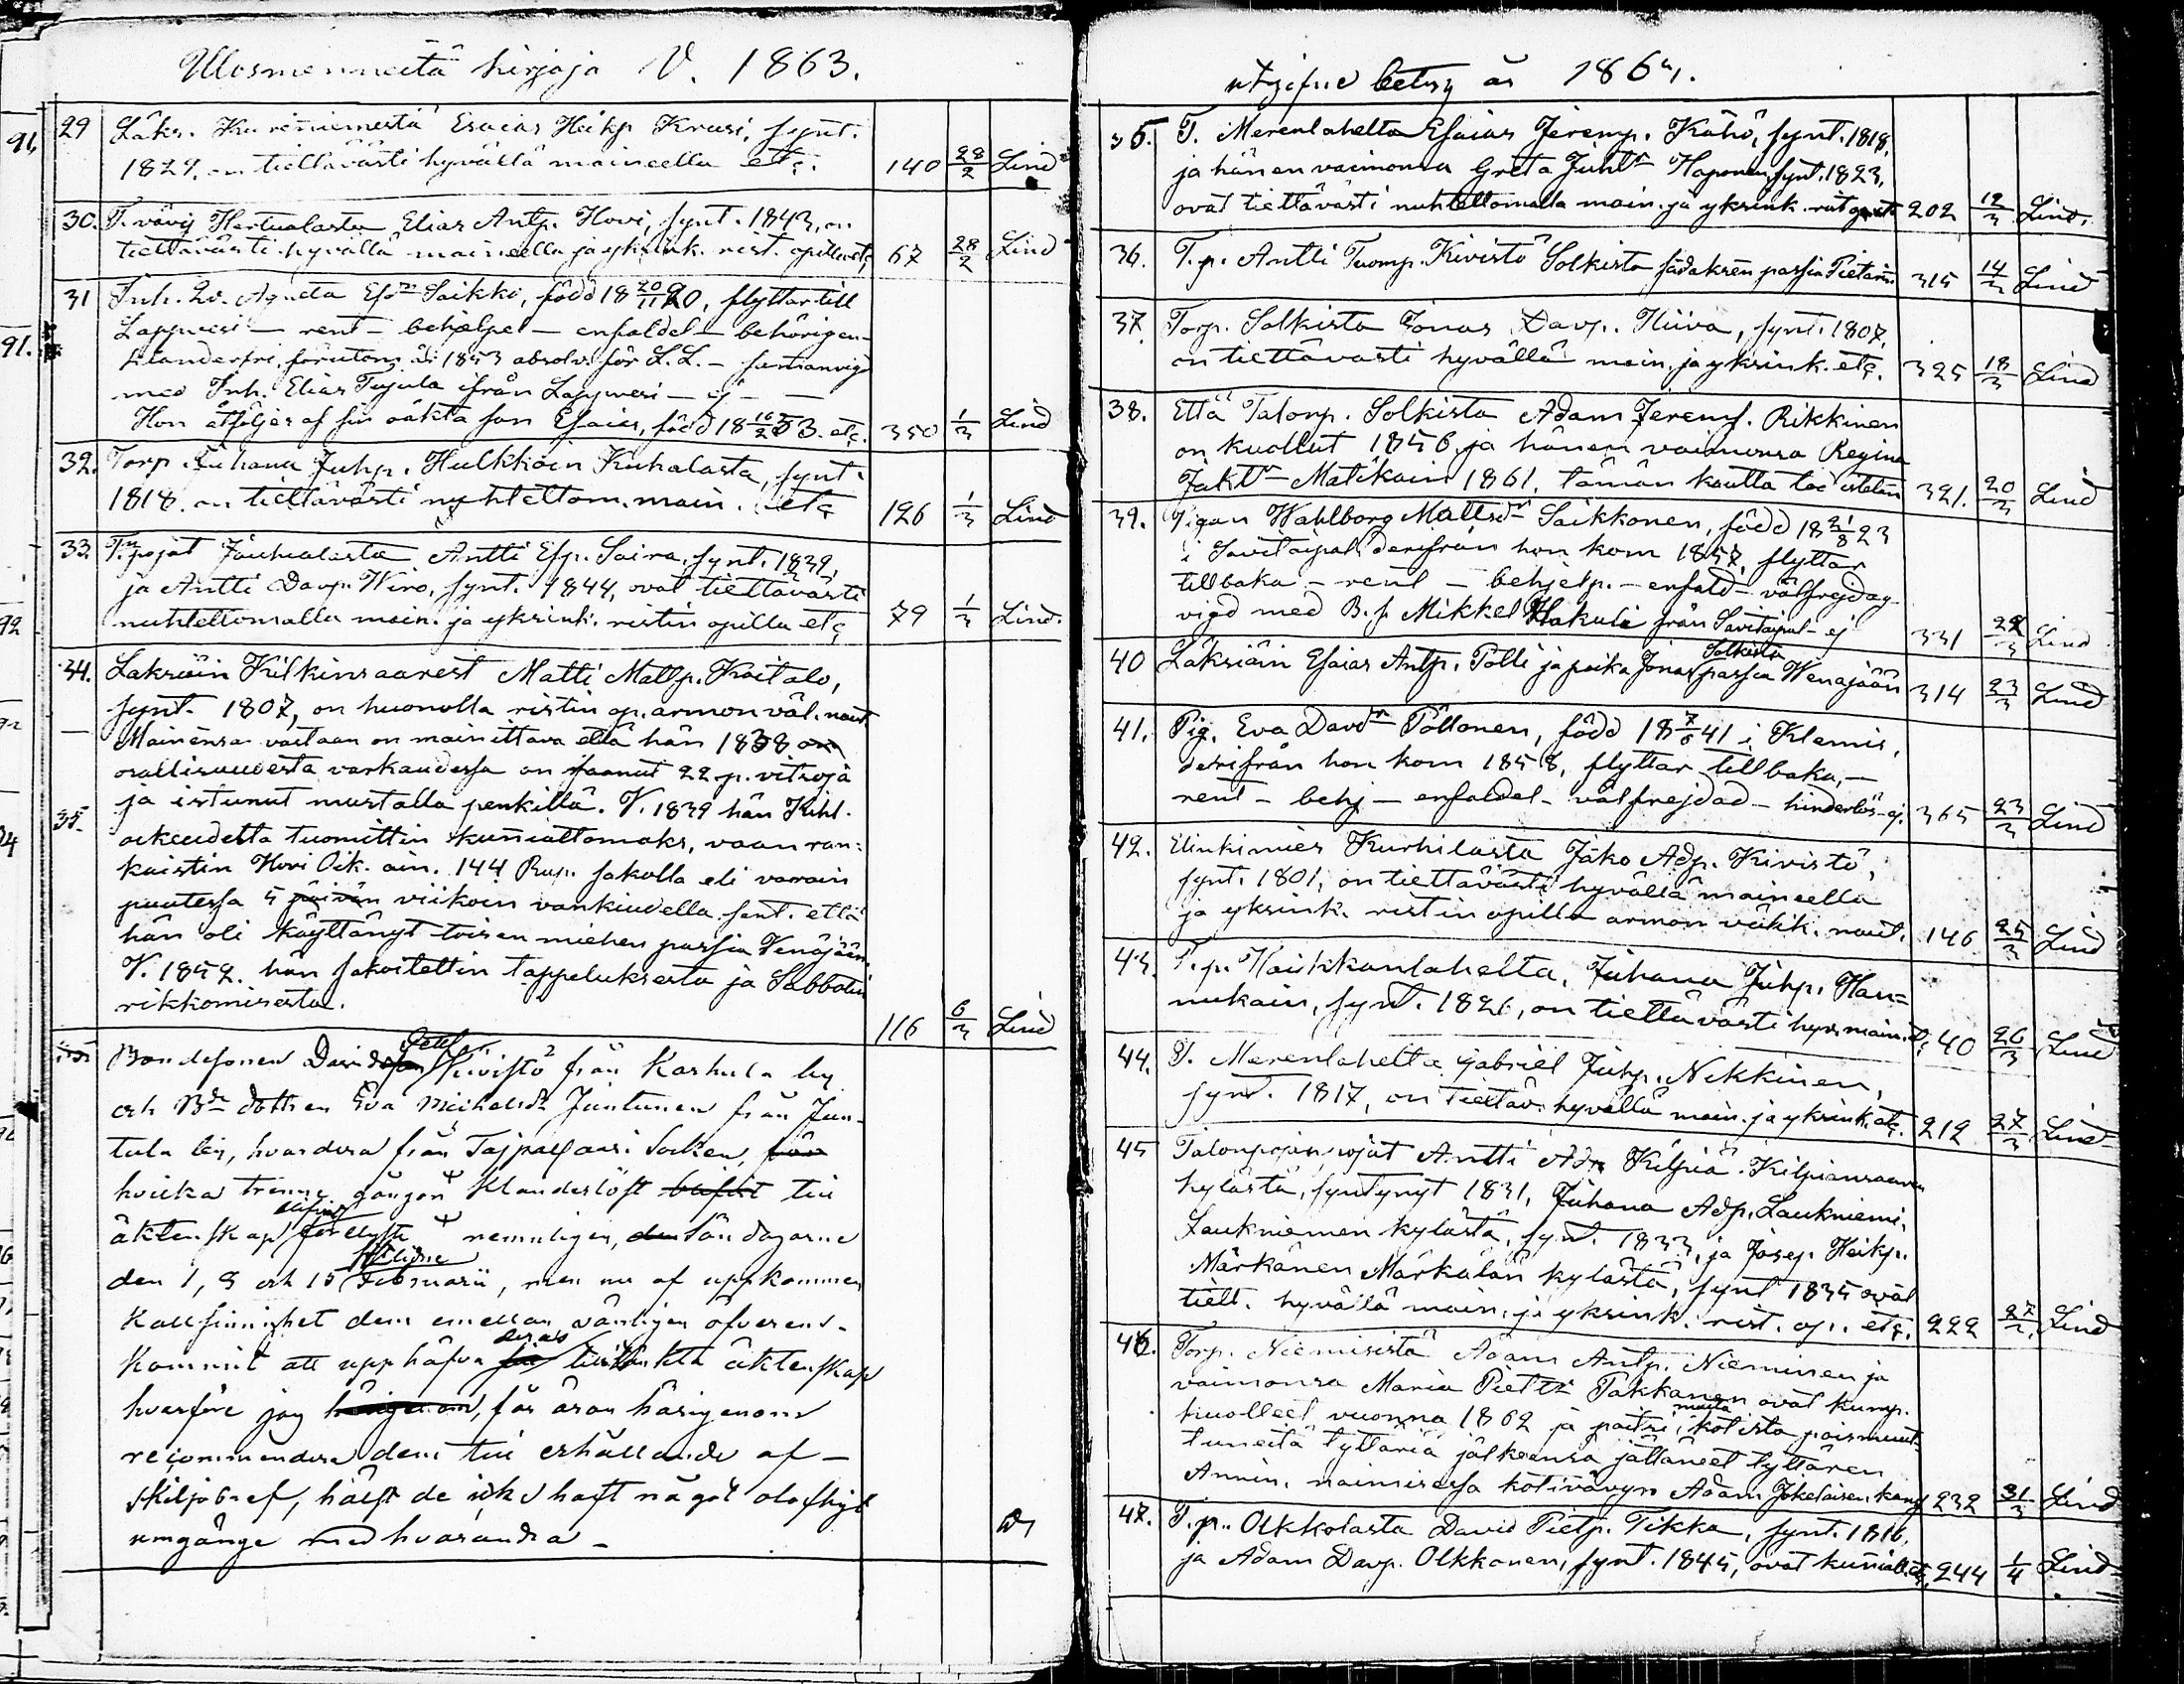 Ulosmenneitä kirjoja V. 1863.
29 Läks. Kureniemestä Esaias Heikp Kruusi, synt.
1829, on tiettävästi hyvällä maineella etc. 140 28/2 Lind
30. T. vävy Hertualasta Elias Antp. Hovi, synt. 1843, on
tiettävästi hyvällä maineella ja yksink. rist. opilla etc 67 28/2 Lind
31 Inh. Agneta Saikko, född 18 20/11 20, flyttar till
Lappvesi – rent – behjelpel – enfaldel – behörigen
klanderfri, förutom år 1853 absolv. för L.L. – sammanvigd
med Inh. Elias Tujula ifrån Lappvesi – ej –
Hon åtföljes af sin oäkta son Esaias, född 18 53. etc. 350 1/3 Lind
32. Torp. Juhana Juhp. Hulkkoin Kuhalasta, synt.
1818. on tiettävästi nuhteettom. main. etc 126 1/3 Lind
33. T. pojat Jauhialasta Antti Esp. Saira, synt. 1839,
ja Antti Davp. Wiro, synt. 1844, ovat tiettävästi
nuhteettomalla main. ja yksink. ristin opilla etc 79 1/3 Lind.
34. Läksiäin Kilkinsaarest Matti Mattp. Koitalo,
synt. 1807, on huonolla ristin op. armon väl. naut
Mainensa vastaan on mainittava että hän 1838 on
osallisuudesta varkaudessa on saanut 22 p. vitsoja
ja istunut mustalla penkillä. V. 1839 hän Kihl.
35. oikeudelta tuomittin kuniattomaks, vaan ran-
kaistin Hovi Oik. ain. 144 Rup. sakolla eli varain
puutessa 5 päivän viikoin vankiudella, sent. että
hän oli käyttänyt toisen miehen passia Venäjään.
V. 1852. hän sakoitettin tappeluksesta ja Sabbatin
rikkomisesta. 116 6/3 Lind
Bondesonen David Kivistö från Karhula by
och dottren Eva Michelsdr Juntunen från Jun-
tula by, hvardera från Tajpalsaari Socken,
hvilka trenne gångor klanderlöst till
äktenskap nemnligen, den Söndagarne
den 1, 8 och 15 Februarii, men nu af uppkommen
Kallsinnighet dem emellan vänligen öfverens-
kommit att upphäfva deras tilltänkta äktenskap
hvarföre jag härigenom, får äran härigenom
recommendera dem till erhållande af –
skiljobref, hälst de icke haft något olofligt
umgänge med hvarandra –
utgifne betyg år 1864.
35. T. Merenlahelta Esaias Jeremp. Kähö, synt. 1818,
ja hänen vaimonsa Greta Juhtr Haponen, synt. 1823,
ovat tiettävästi nuhtettomalla main. ja yksink. 202 12/3 Lind.
36. T.p. Antti Tuomp. Kivistö Solkista sadaksen passia Pietarin 315 14/3 Lind
37. Torp. Solkista Jonas Davp. Hiiva, synt. 1807,
on tiettävästi hyvällä main. ja yksink. etc. 325 18/3 Lind
38. Että Talonp. Solkista Adam Jeremp. Rikkinen
on kuollut 1856 ja hänen vaimonsa Regina
Jaktr Matikain 1861, tämän kautta tod istetan 321. 20/3 Lind
39. Pigan Wahlborg Mattsdr Saikkonen, född 18 21/8 23
i Savitaipal derifrån hon kom 1857, flyttar
tillbaka – rent – behjelp. – enfald – välfrejdag
vigd med B.s. Mikkel Hakuli från Savitaipal – ej 331 22/3 Lind
40 Läksiäin Esaias Antp. Polli ja poika Jonas Solkista passia Wenäjään 314 23/3 Lind
41. Pig. Eva Davdr Pöllonen, född 18 41 i Klemis,
derifrån hon kom 1858, flyttar tillbaka, –
rent – behj – enfaldel – välfrejdad – hinderlös – ej. 365 23/3 Lind
42. Elinkimies Kurhilasta Jako Adp. Kivistö,
synt. 1801, on tiettävästi hyvällä maineella
ja yksink. ristin opilla armon välik. naut. 146 25/3 Lind
43. T.p. Haukkanlahelta, Juhana Juhp. Han=
nukain, synt. 1826, on tiettävästi hyv. main. etc 40 26/3 Lind
44. T. Merenlahelta Gabriel Juhp. Nikkinen,
synt. 1817, on tiettäv. hyvällä main. ja yksink. etc. 212 27/3 Lind
45 Talonpojan pojat Antti Adp Kilpiä Kilpiänsaaren
kylästä, syntynyt 1831, Juhana Adp. Laukniemi,
Laukniemen kylästä, synt. 1833, ja Josep Heikp.
Märkänen Märkälän kylästä, synt 1835 ovat
tiett. hyvällä main. ja yksink. rist. op. etc. 222 27/3 Lind
46. Torp. Niemisistä Adam Antp. Nieminen ja
vaimonsa Maria Piettr Takkanen ovat kump.
kuolleet vuonna 1862 ja paitsi muita kotista poismuut-
tuneita tyttäriä jälkeensä jättäneet tyttären
Annin, naimisessa kotivävyn Adam Jokelaisen kans 232 31/3 Lind
47. T.p. Olkkolasta David Pietp. Tikka, synt. 1816,
ja Adam Davp. Olkkonen, synt. 1845, ovat kunniall. etc. 244 1/4 Lind